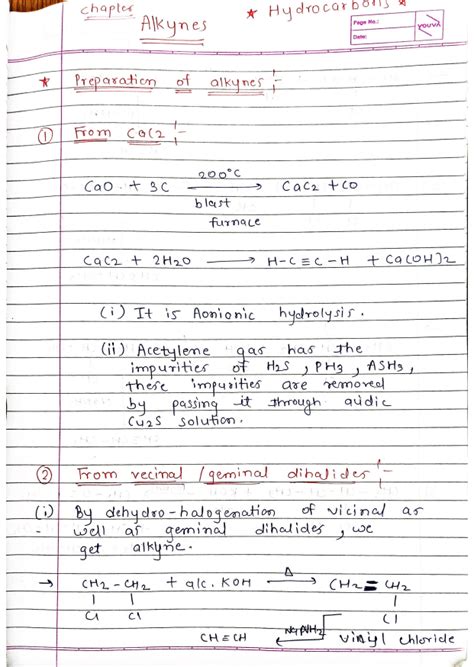 chapter
★ Hydrocarbons ★
Alkynes
Page No.:
Date:
YOUVA
★ Preparation of alkynes :-
① From CaC2 :-
200°C
CaO + 3C → CaC2 + CO
blast
furnace
CaC2 + 2H2O → H-C≡C-H + Ca(OH)2
(i) It is Aonionic hydrolysis.
(ii) Acetylene gas has the
impurities of H2S, PH3, ASH3,
these impurities are removed
by passing it through acidic
Cu2S solution.
② From vecinal / geminal dihalides :-
(i) By dehydro-halogenation of vicinal as
well as geminal dihalides, we
get alkyne.
→ CH2-CH2 + alc. KOH Δ → CH2=CH2
Cl Cl Cl
CH≡CH ← NaNH2 vinyl chloride